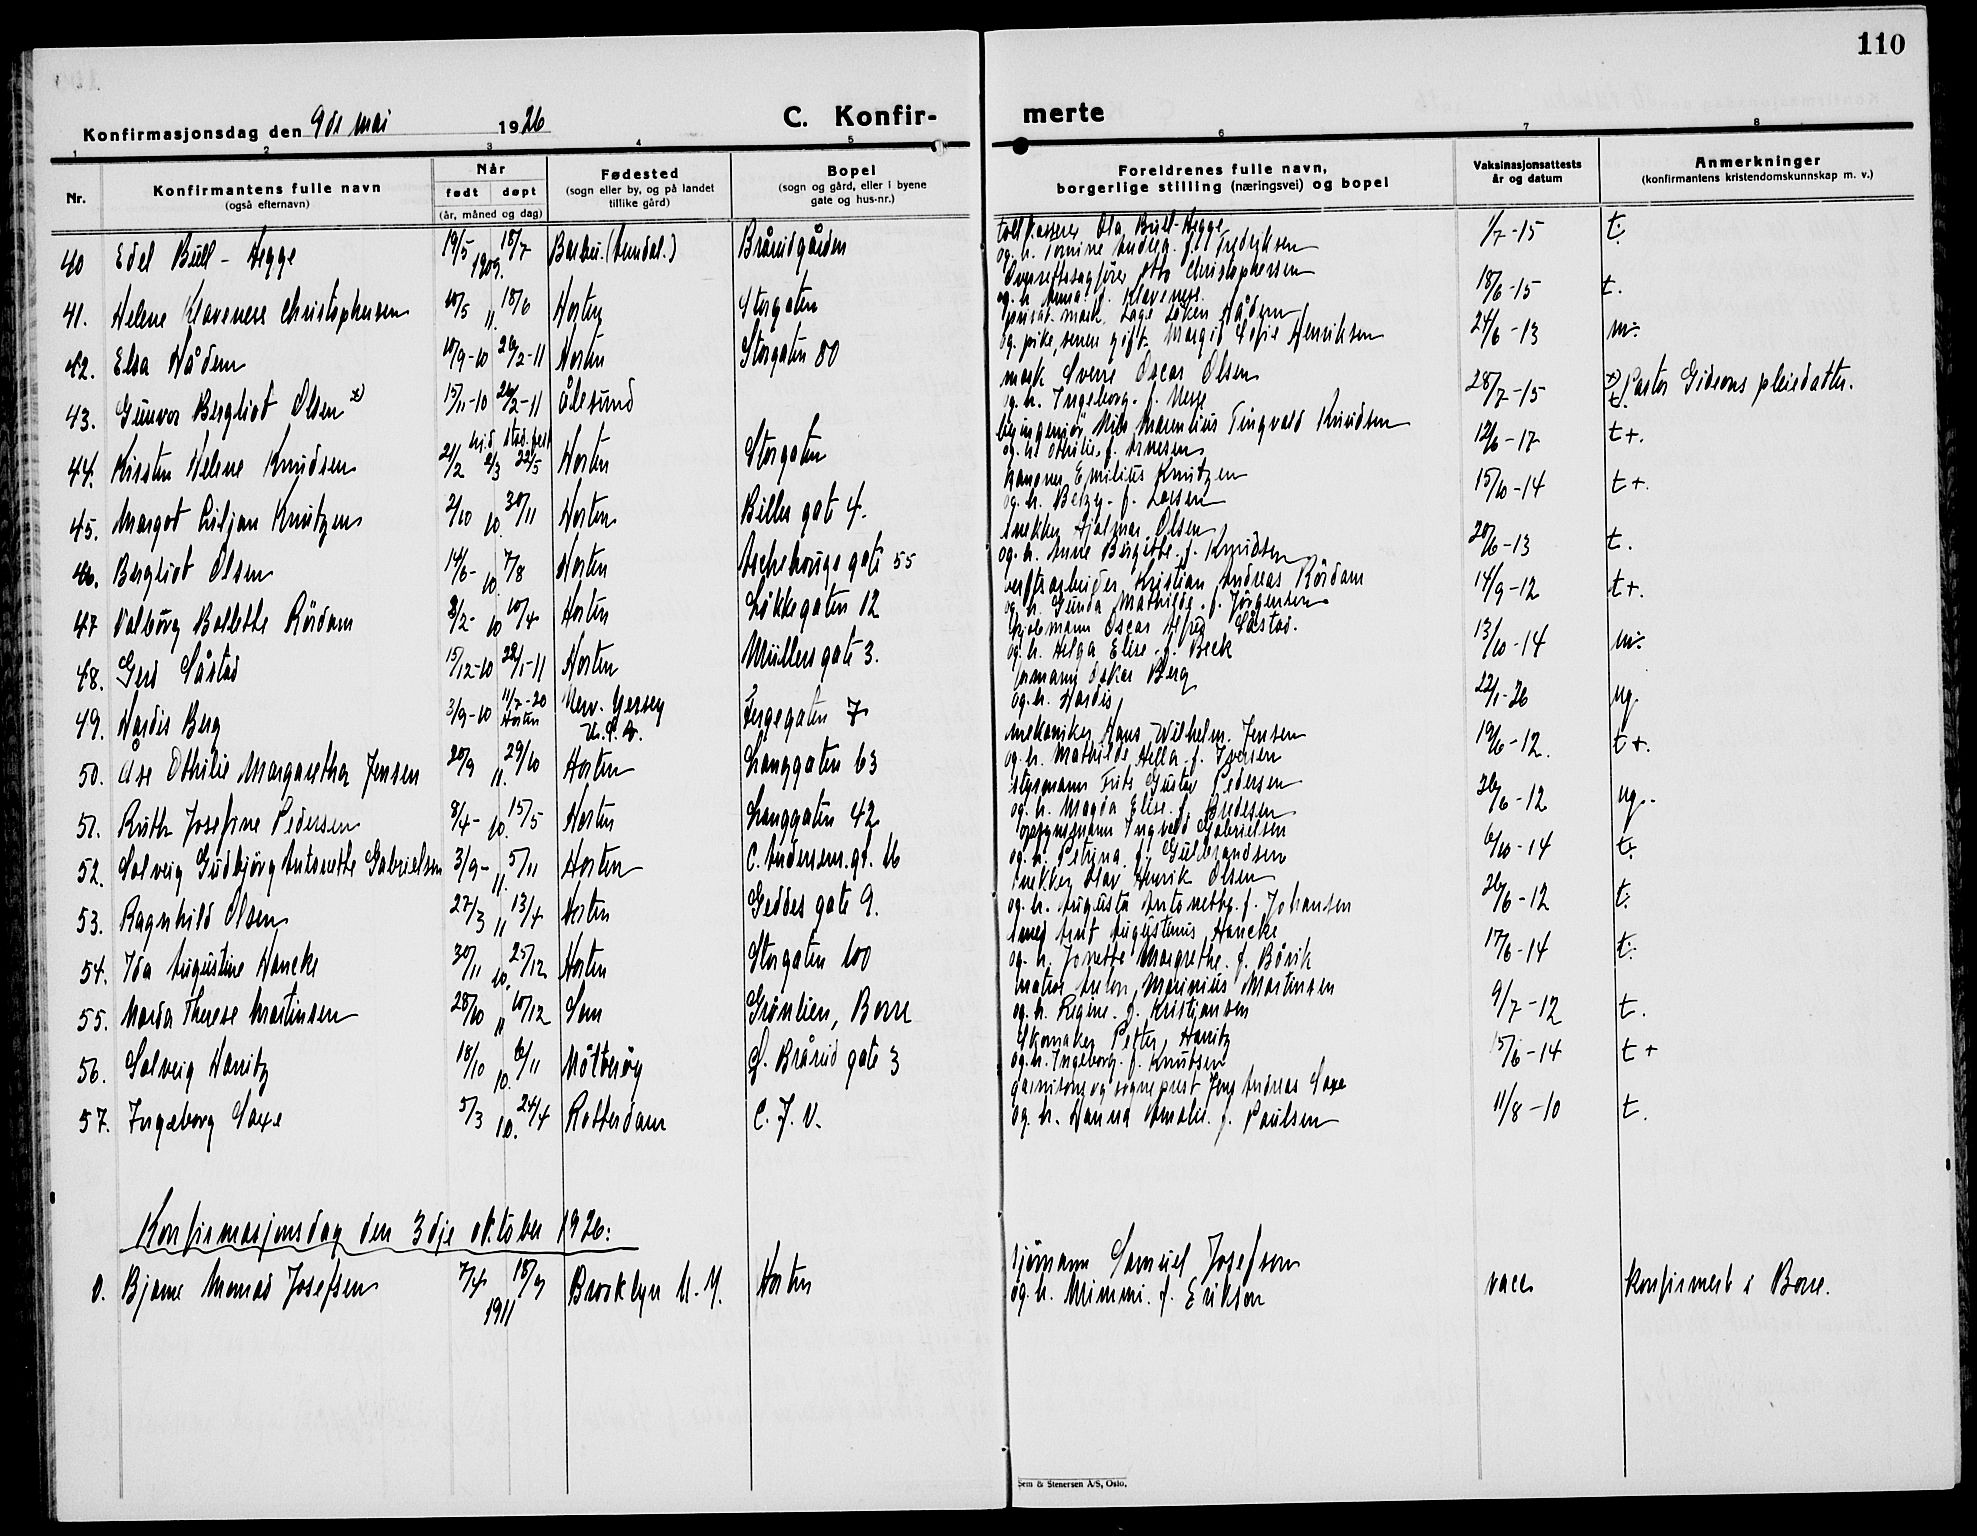 110
Konfirmasjonsdag den 9de mai 1926
C. Konfir-
merte
1 2 3 4 5 6 7 8
Nr.
Konfirmantens fulle navn
(også efternavn)
Når
født døpt
(år, måned og dag)
Fødested
(sogn eller by, og på landet
tillike gård)
Bopel
(sogn og gård, eller i byene
gate og hus-nr.)
Foreldrenes fulle navn,
borgerlige stilling (næringsvei) og bopel
Vaksinasjonsattests
år og datum
Anmerkninger
(konfirmantens kristendomskunnskap m. v.)
40 Edel Bull-Hegge 19/5 18/7 1909. Barbu. (Arendal.) Bråridgården
Ola Bull-Hegge 1/7-15 t.
og h. f. Fredriksen
41. Helene Klaveness Christophersen 10/5 18/6 11. Horten Storgaten
Overrettssagfører Otto Christophersen 18/6-15 t.
og h. Anna f. Klavenes.
42. Elsa Hådem 10/9-10 26/2-11 Horten Storgaten 80
Løken Hådem 24/6-13 m.
og pike, senere gift Margit Sofie Henriksen
43. Gunvor Bergliot Olsen x) 15/11-10 26/2-11 Ålesund
mask Sverre Oscar Olsen 28/7-15 x) Pastor Gideons pleiedatter.
og h. Ingeborg f. t.
44. Kirsten Helene Knudsen 21/2 2/3 22/5 Horten Storgaten
Nils Marentius Tingvald Knudsen 12/6-17 t+.
og h. Othilie f. Arnesen
45. Margot Liljan Knutzen 2/10 10. 30/11 Horten Billes gat 4.
Emilius Knutzen 15/10-14 t+.
og h. Betzy f. Larsen
46. Bergliot Olsen 14/6- 10. 7/8 Horten Aschehougs gate 55
snekker Hjalmar Olsen 20/6-13 t.
og h. Anne Birgitte f. Knudsen
47 Valborg Bollette Rördam 2/2- 10 10/4 Horten Løkkegaten 12
verftsarbeider Kristian Andreas Rördam 14/9-12 t+.
og h. Gunda Mathilde f. Jørgensen
48. Gerd Såstad 15/12-10 22/1-11 Horten Müllers gate 3.
Oscar Alfred Såstad. 13/10-14 m.
og h. Helga Elise f. Beck
49. Hardis Berg 3/9-10 11/7-20 Horten New Yersey U.S.A. Fergegaten 7
formann Oskar Berg 22/1-26 ug.
og h. Hardis
50. Åse Othilie Margaretha Jensen 20/9 11. 29/10 Horten Langgaten 63
mekaniker Hans Wilhelm Jensen 19/6-12. t+.
og h. Mathilde Hella f. Iversen
51. Ruth Josefine Pedersen 8/4- 10. 15/5 Horten Langgaten 42
styrmann Frits Gustav Pedersen 26/6-12 ug.
og h. Magda Elise f. Bredesen
52. Solveig Gudbjörg Antonette Gabrielsen 3/9- 11. 5/11 Horten C. Andersens gt. 16
opsynsmann Ingvald Gabrielsen 6/10-14 t.
og h. Petrina f. Gulbrandsen
53. Ragnhild Olsen 27/3 11 13/4 Horten Geddes gate 9.
snekker Olav Henrik Olsen 26/6-12 t.
og h. Augusta Antonette f. Johansen
54. Ida Augustine Hancke 30/11 10. 25/12 Horten Storgaten 100
smed Arnt Augustinus Hancke 17/6-14 t.
og h. Jonette Margrethe f. Bårik
55. Marda Therese Martinsen 28/10 11 10/12 Sem Grønlien, Borre
matros Anton Marinius Martinsen 9/7-12 t.
og h. Regine f. Kristiansen
56. Solveig Hanitz 18/10 10. 6/11 Nötterøy S. Brårud gate 3
Skomaker Petter Hanitz 15/6-14 t+
og h. Ingeborg f. Knudsen
57. Ingeborg Saxe 5/3 10. 24/4 Rotterdam C. J. V.
garnisons og sogneprest Jens Andreas Saxe 11/8-10 t.
og h. Hanna Amalie f. Paulsen
Konfirmasjonsdag den 3dje oktober 1926:
0. Bjarne Thomas Josefsen 7/4 18/9 1911 Brooklyn N.Y. Horten
sjømann Samuel Josefson vacc konfirmert i Borre.
og h. Mimmi f. Erikson
Sem & Stenersen A/S, Oslo.